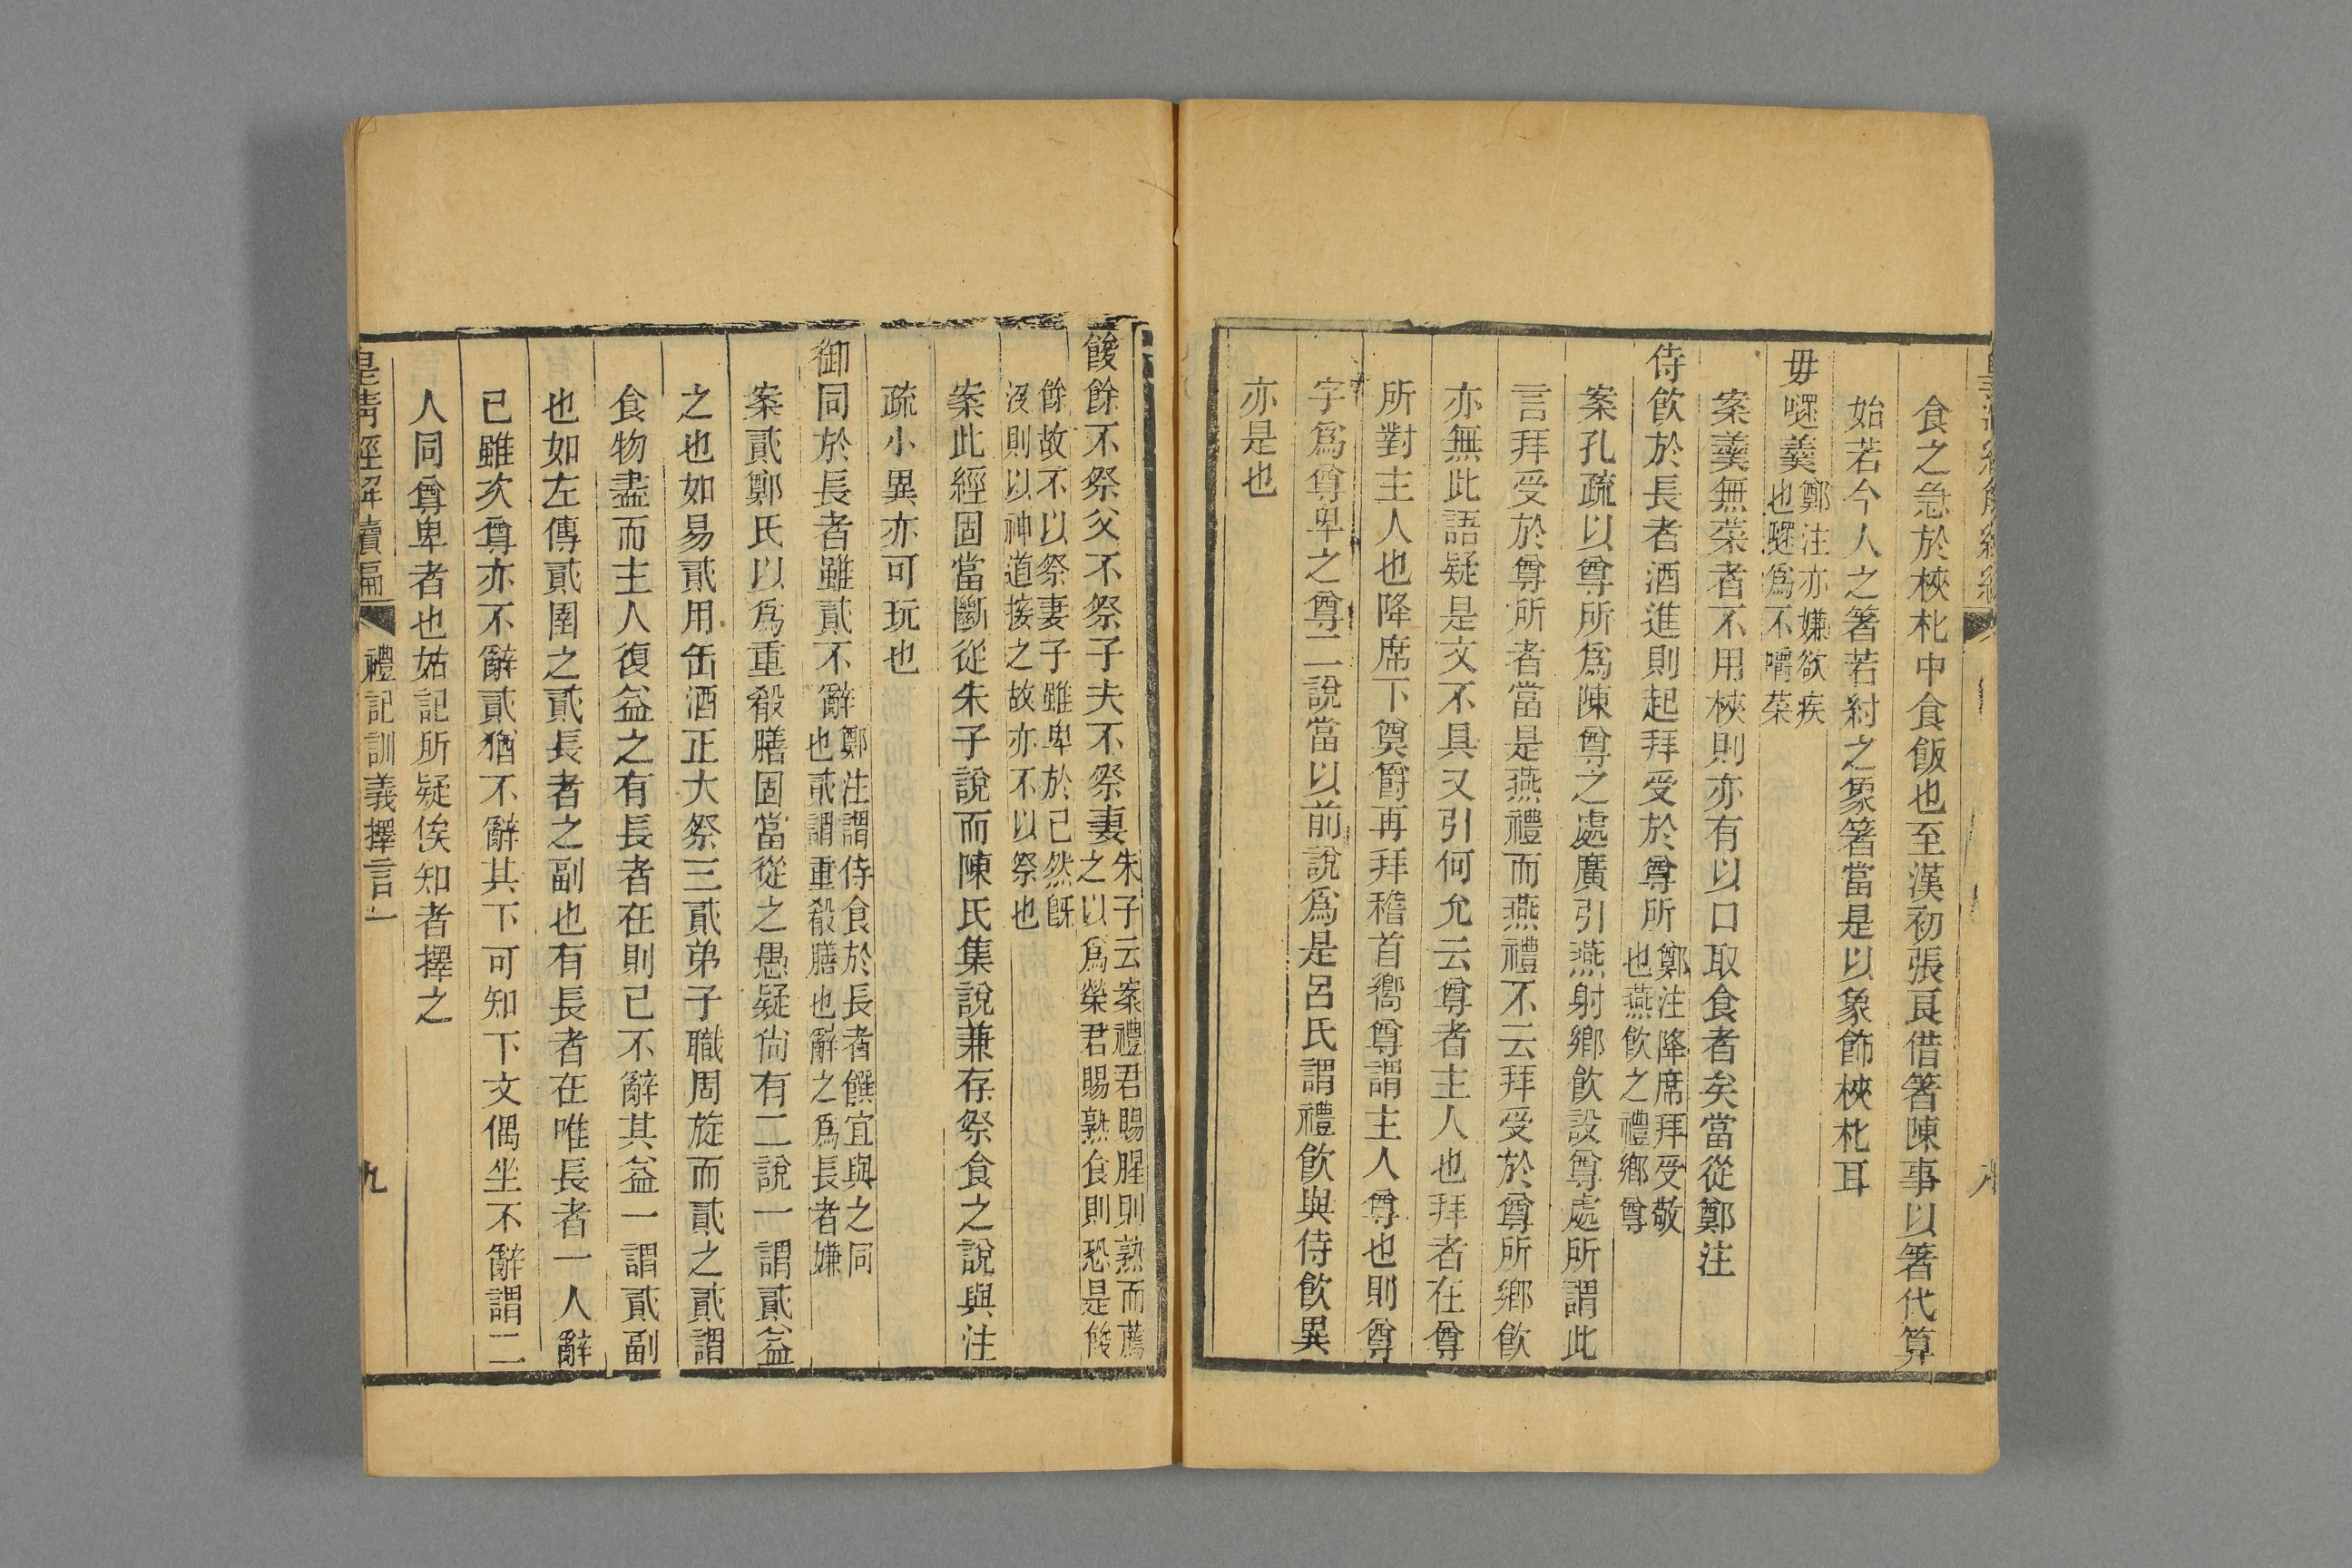 食之急於梜朼中食飯也至漢初張良借箸陳事以箸代算
始若今人之箸若紂之象箸當是以象飾梜朼耳
毋嚃羹鄭注亦嫌欲疾
也嚃爲不嚼菜
案羹無菜者不用梜則亦有以口取食者矣當從鄭注
侍飮於長者酒進則起拜受於尊所鄭注降席拜受敬
也燕飮之禮鄕尊
案孔疏以尊所爲陳尊之處廣引燕射鄕飮設尊處所謂此
言拜受於尊所者當是燕禮而燕禮不云拜受於尊所鄕飮
亦無此語疑是文不具又引何允云尊者主人也拜者在尊
所對主人也降席下奠爵再拜稽首嚮尊謂主人尊也則尊
字爲尊卑之尊二說當以前說爲是呂氏謂禮飮與侍飮異
亦是也
餕餘不祭父不祭子夫不祭妻朱子云案禮君賜腥則熟而薦
之以爲榮君賜熟食則恐是餕
餘故不以祭妻子雖卑於己然旣
沒則以神道接之故亦不以祭也
案此經固當斷從朱子說而陳氏集說兼存祭食之說與注
疏小異亦可玩也
御同於長者雖貳不辭鄭注謂侍食於長者饌宜與之同
也貳謂重殽膳也辭之爲長者嫌
案貳鄭氏以爲重殽膳固當從之愚疑尙有二說一謂貳益
之也如易貳用缶酒正大祭三貳弟子職周旋而貳之貳謂
食物盡而主人復益之有長者在則己不辭其益一謂貳副
也如左傳貳圉之貳長者之副也有長者在唯長者一人辭
己雖次尊亦不辭貳猶不辭其下可知下文偶坐不辭謂二
人同尊卑者也姑記所疑俟知者擇之
皇淸經解續編 禮記訓義擇言一 九